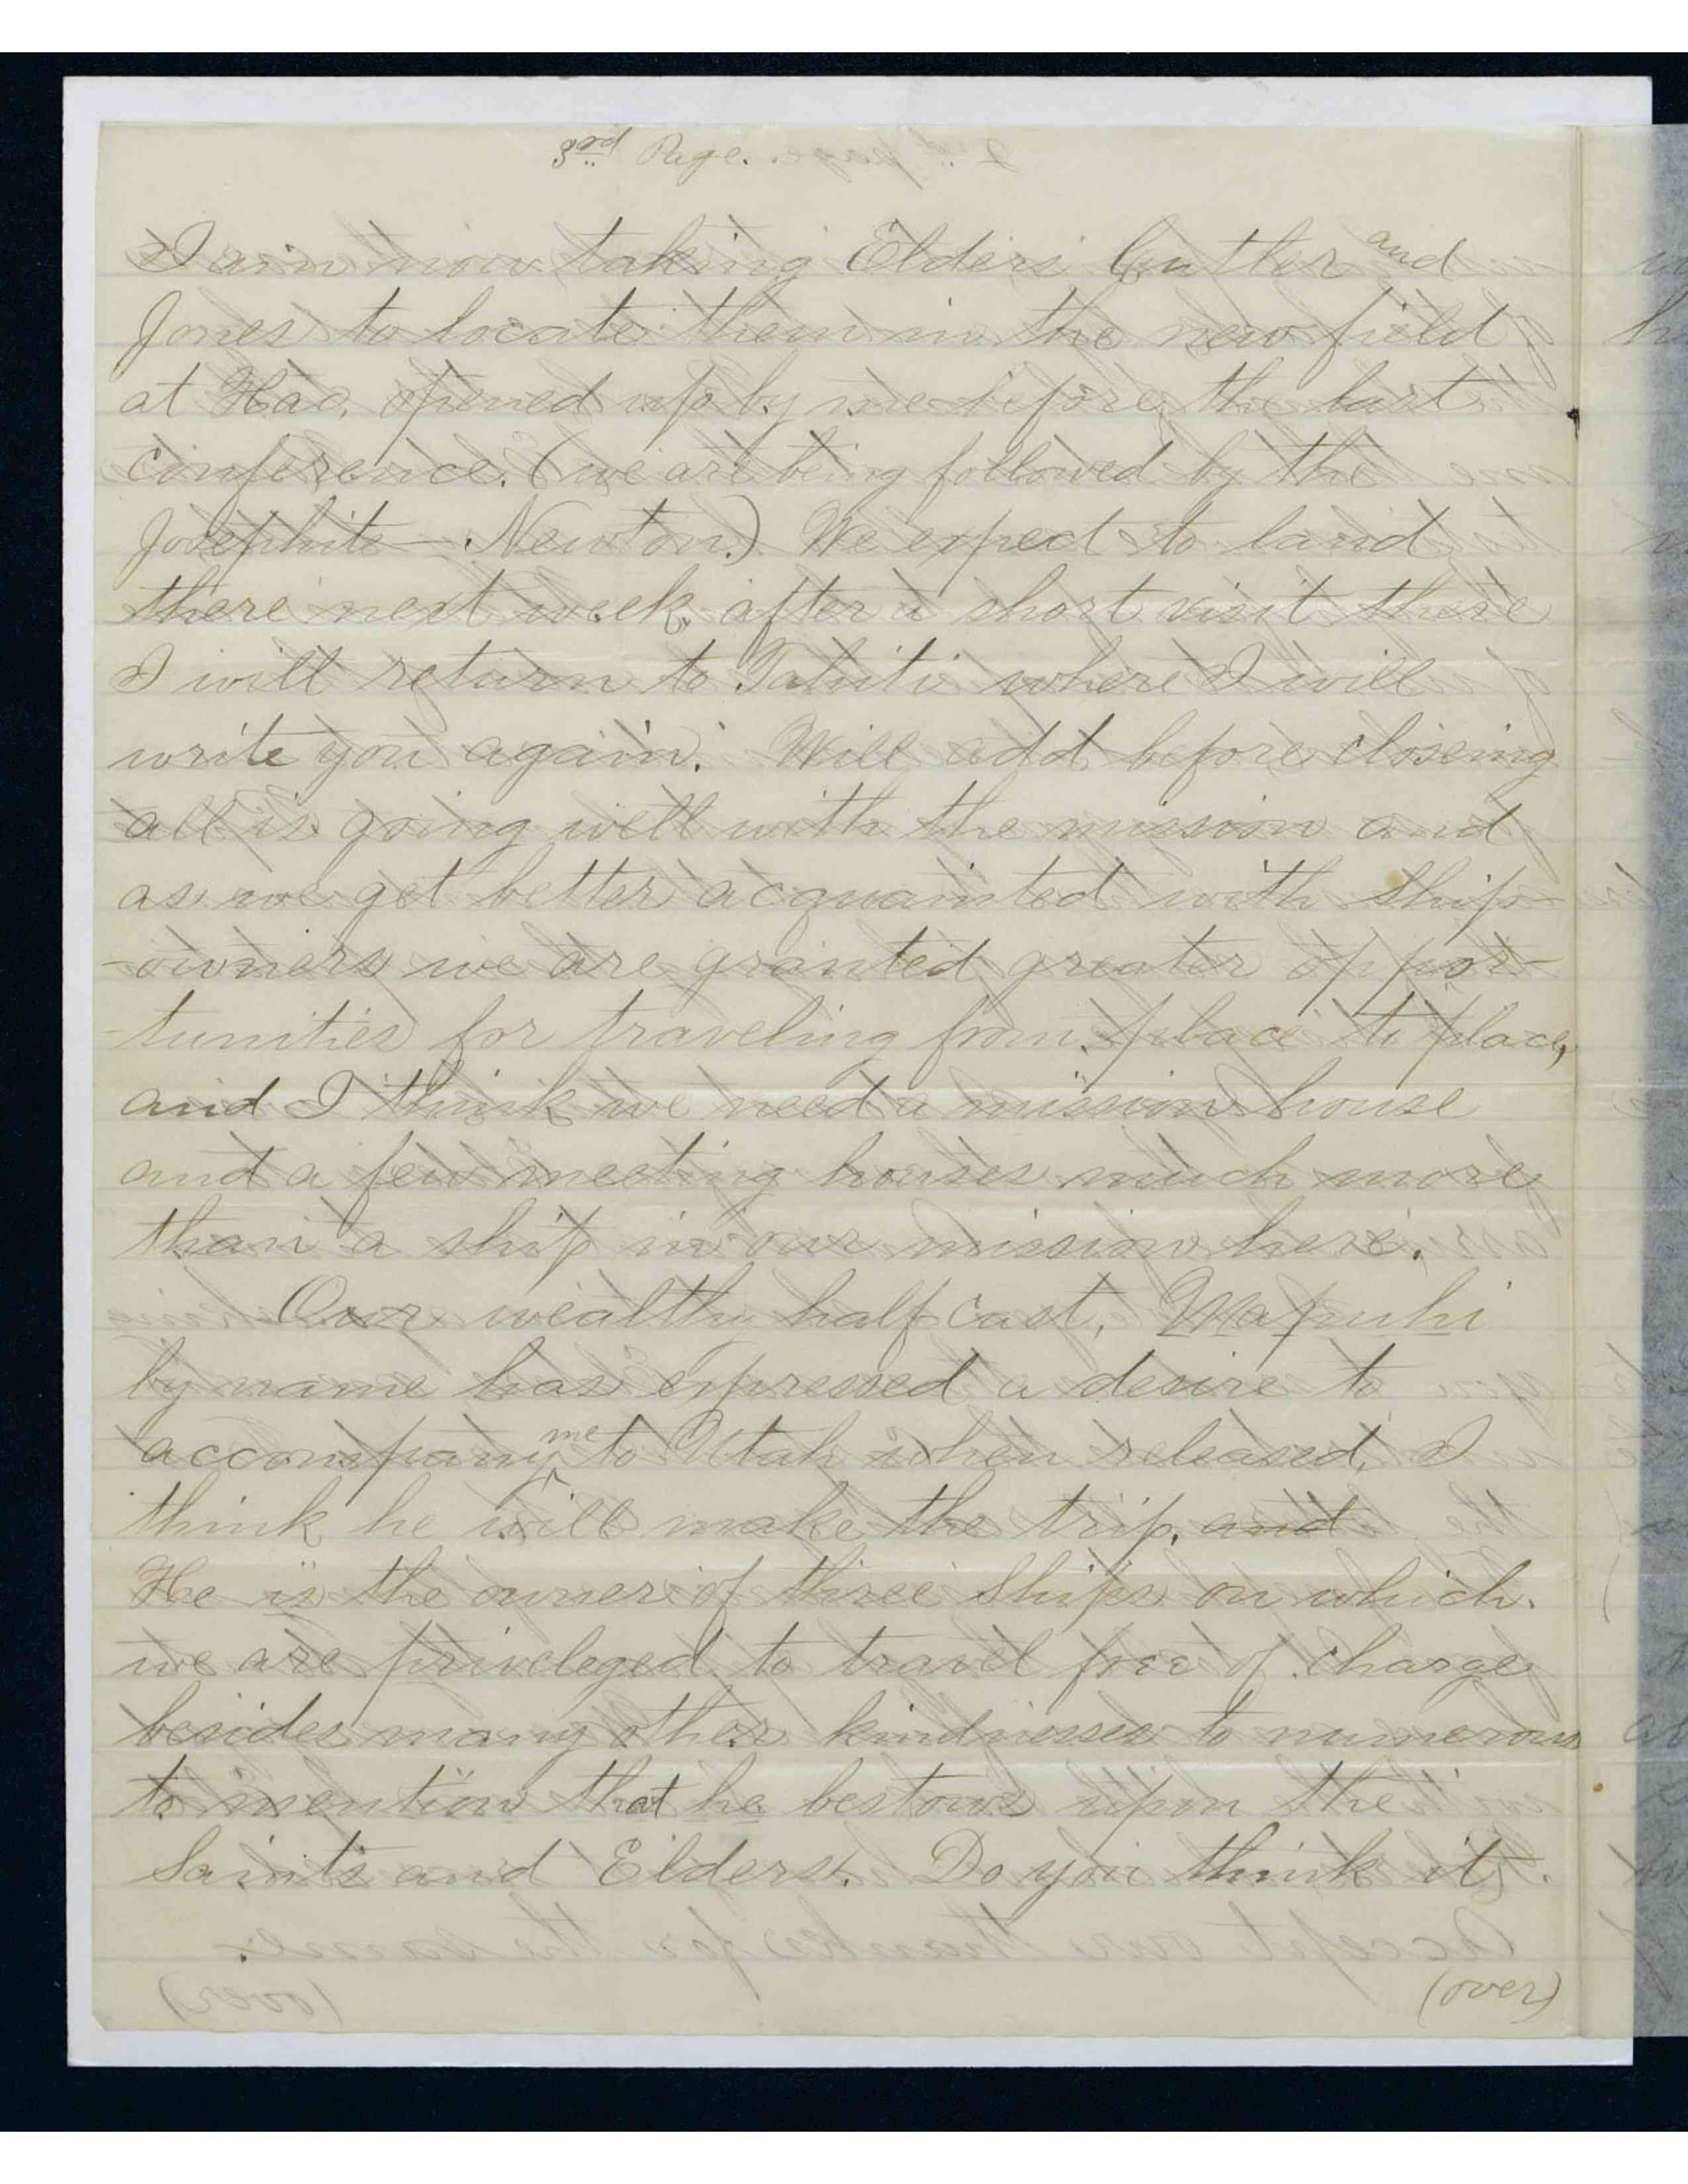 3rd Page.
I am now taking Elders Cutler and
Jones to locate them in the new field
at Hao, opened up by me before the last
conference. (we are being followed by the
Josephite — Newton.) We expect to land
there next week, after a short visit there
I will return to Tahiti where I will
write you again. Will add before closeing
all is going well with the mission and
as we get better acquainted with ship-
-owners we are granted greater oppor-
-tunities for traveling from place to place,
and I think we need a mission house
and a few meeting houses much more
than a ship in our mission here.
Our wealthy half cast, Mapuhi
by name has expressed a desire to
accompany me to Utah when released, I
think he will make the trip. and
He is the owner of three ships on which
we are priveleged to travel free of charge
besides many other kindnesses to numerous
to mention that he bestows upon the
Saints and Elders. Do you think it
(over)